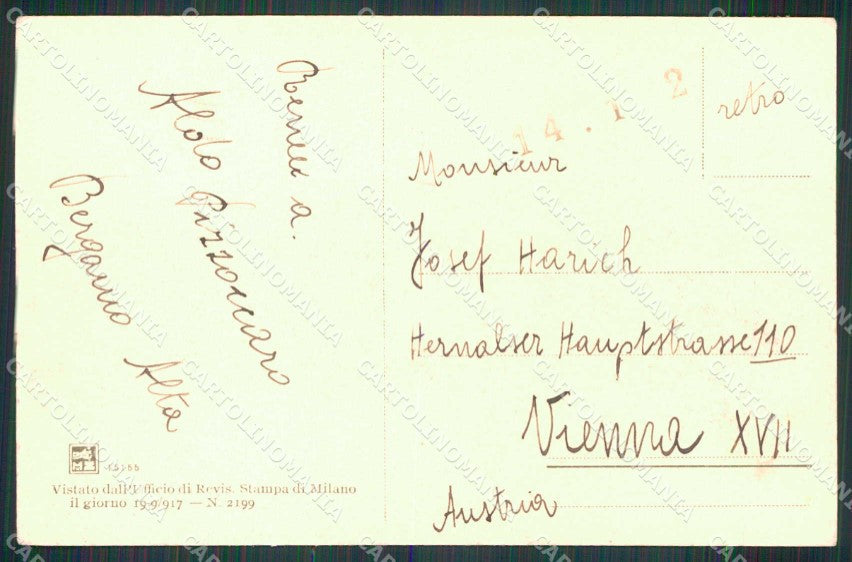 Aldo Pizzoccaro
Bergamo Alta
15155
Vistato dall'Ufficio di Revis. Stampa di Milano
il giorno 19-9/917 — N. 2199
14.1 2
retro
Monsieur
Josef Harich
Hernalser Hauptstrasse 110
Vienna XVII
Austria
CARTOLINOMANIA